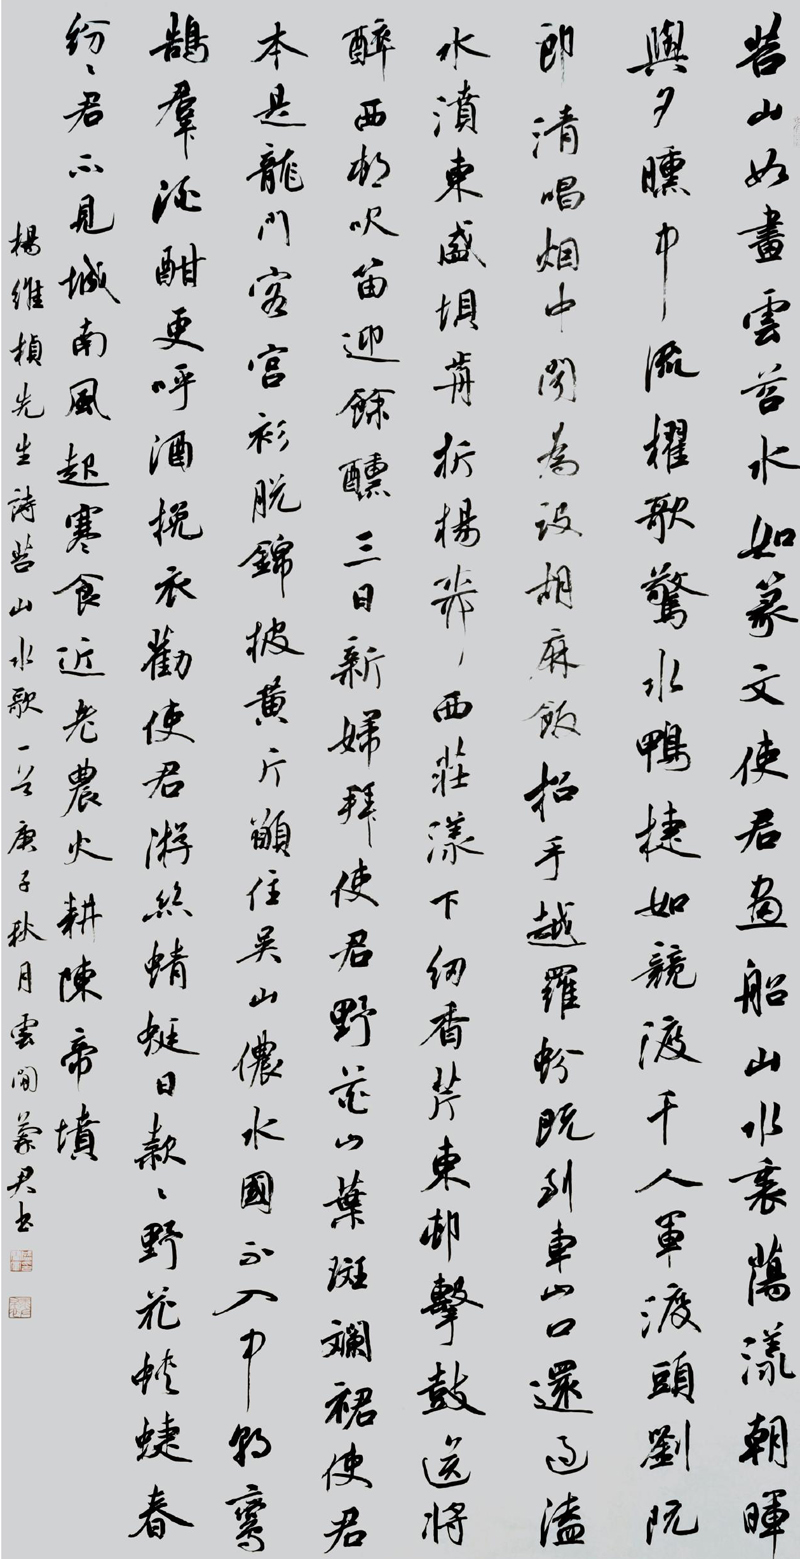 苕山如畫雲苕水如篆文使君畫船山水裏蕩漾朝暉
與夕曛中流櫂歌驚水鴨捷如競渡千人軍渡頭劉阮
郎清唱烟中聞為設胡麻飯招手越羅既到車山口還過溘
水濆東盛埧折楊西莊漾下紉香芹東邨擊鼓送將
醉西邨吹笛迎餘醺三日新婦拜使君野花山葉斑斕裙使君
本是龍門客宮衫脫錦披黃斤住吳山儂水國不入中朝鸞
鵠羣酒酣更呼酒挽衣勸使君游絲蜻蜓日款〻野花蛺蝶春
紛〻君不見城南風起寒食近老農火耕陳帝墳
楊維楨先生詩苕山水歌一首庚子秋月雲間君書